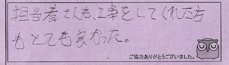 担当者さんも、工事をしてくれた方
もとても良かった。
ご協力ありがとうございました。